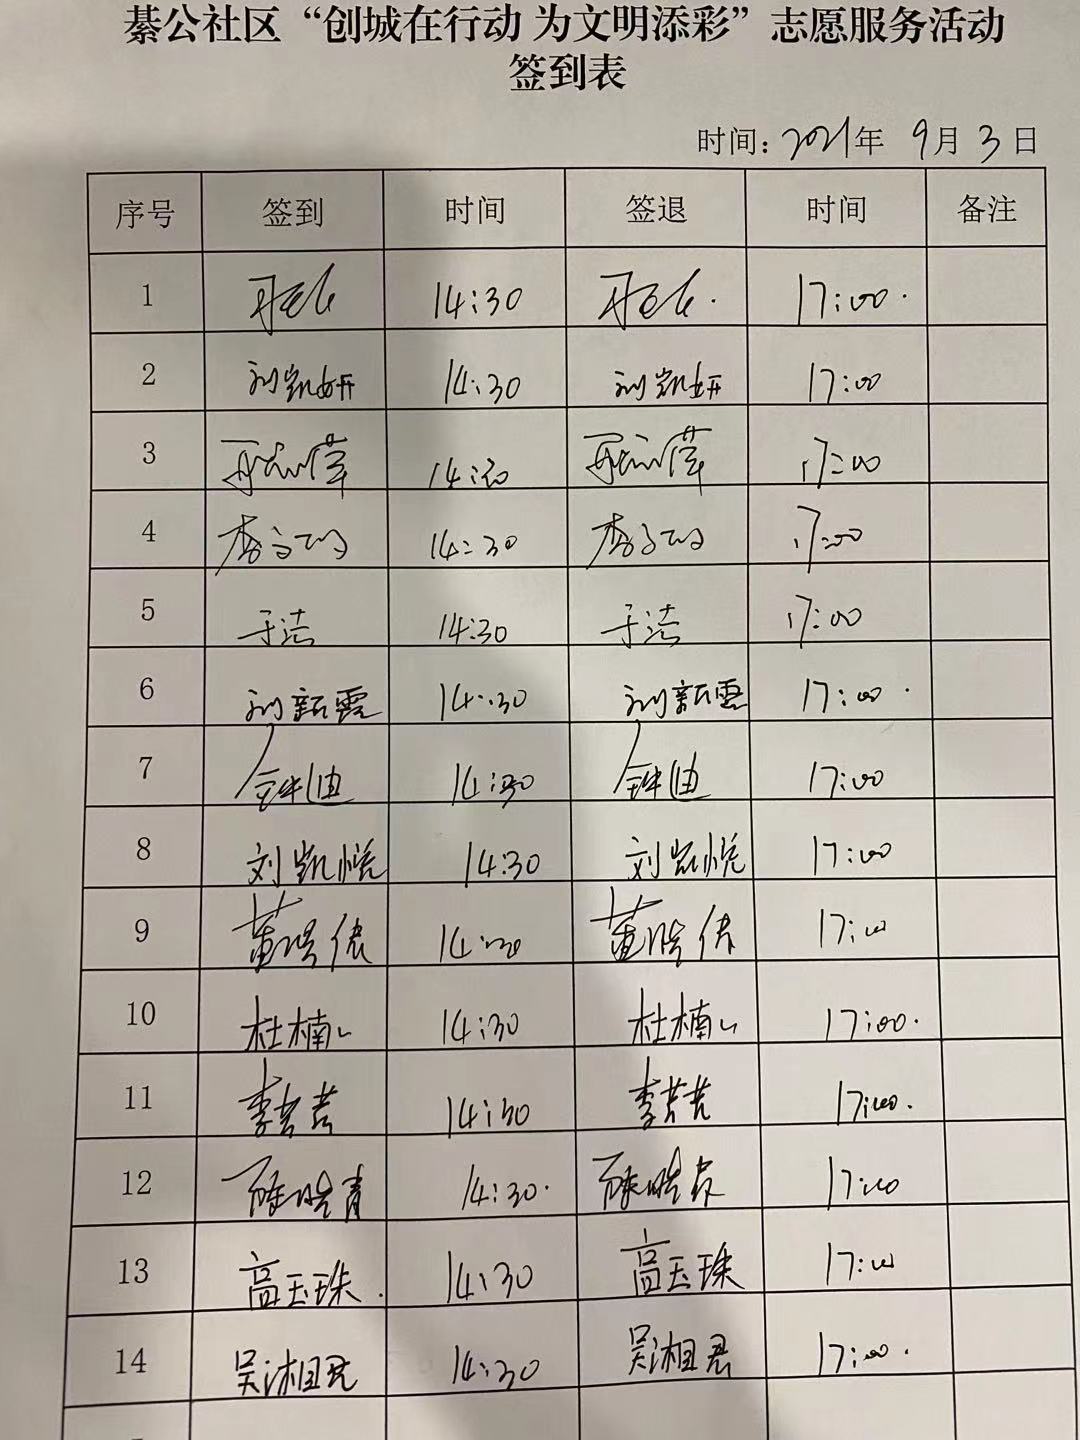 綦公社区“创城在行动 为文明添彩”志愿服务活动
签到表
时间：2021年 9月 3日
序号 签到 时间 签退 时间 备注
1 14:30 17:00
2 刘凯妍 14:30 刘凯妍 17:00
3 14:30 17:00
4 14:30 17:00
5 于洁 14:30 于洁 17:00
6 刘新霞 14:30 刘新霞 17:00
7 钟迪 14:30 钟迪 17:00
8 刘凯悦 14:30 刘凯悦 17:00
9 14:30 17:00
10 杜楠 14:30 杜楠 17:00
11 14:30 17:00
12 14:30 17:00
13 高玉珠 14:30 高玉珠 17:00
14 吴湘君 14:30 吴湘君 17:00